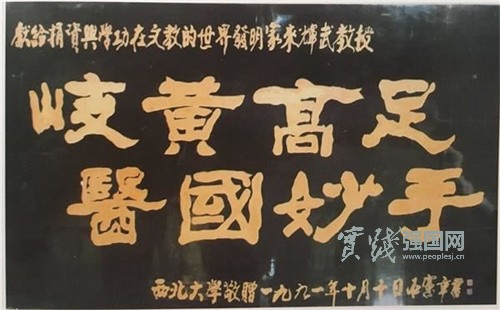 獻給捐資興學功在文教的世界發明家來輝武教授
岐黄高足
醫國妙手
西北大學敬贈一九九一年十月十日 憲章書
实践 强国网
www.peoplesj.com